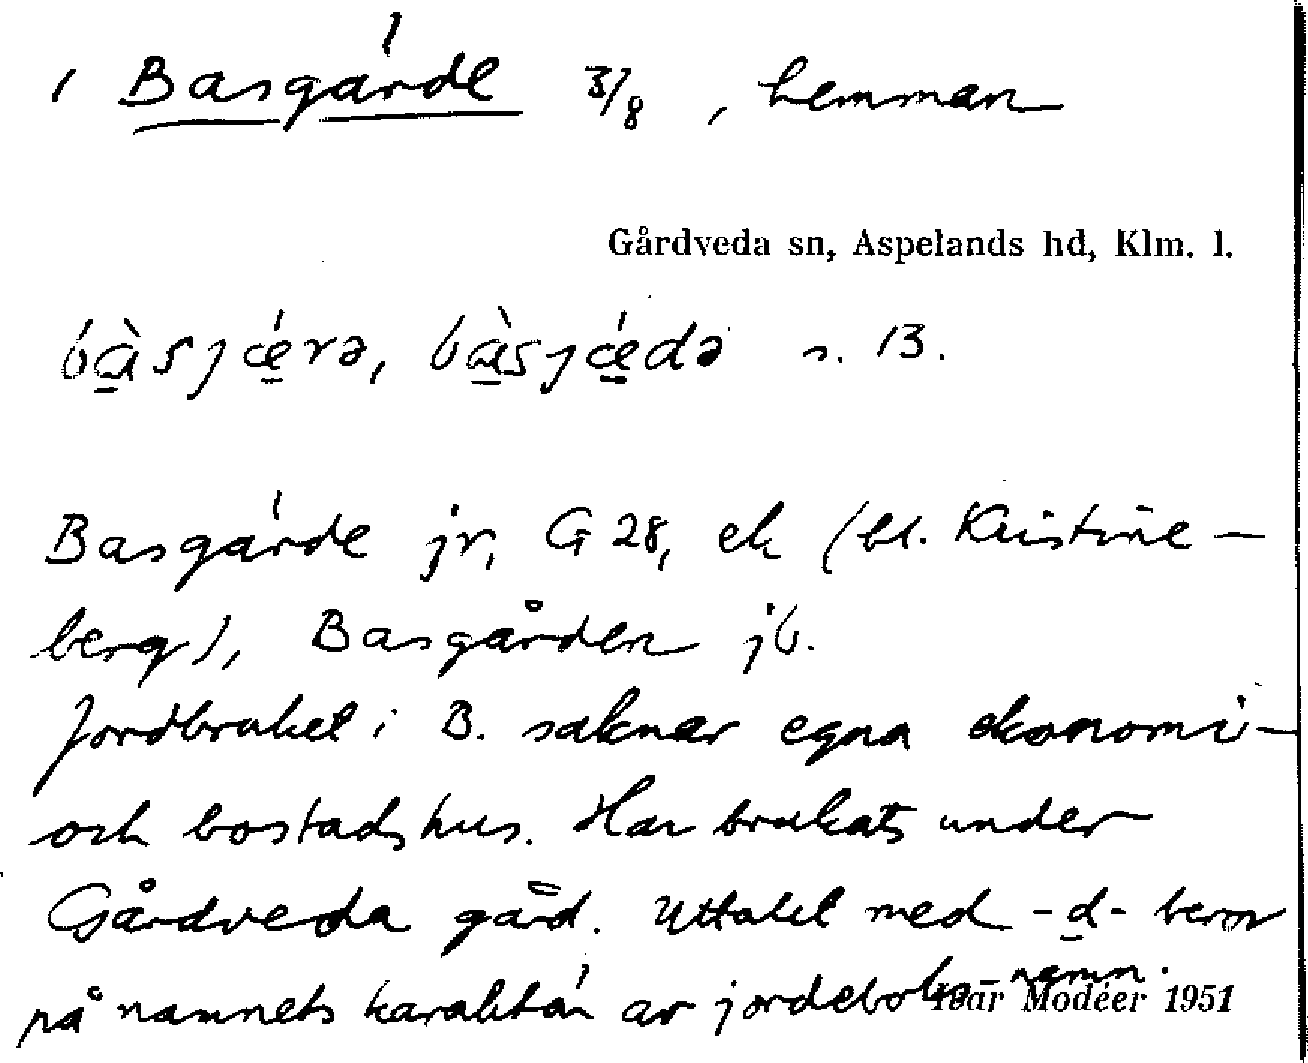 1 Basgärde 3/8, hemman
Gårdveda sn, Aspelands hd, Klm. l.
bàsjǽrə, bàsjǽdə s. 13.
Basgärde jr, G 28, ek (bl. Kristine-
berg), Basgården jb.
Jordbruket i B. saknar egna ekonomi-
och bostadshus. Har brukats under
Gårdveda gård. Uttalet med -d- beror
på namnets karaktär av jordeboksnamn.
Ivar Modéer 1951